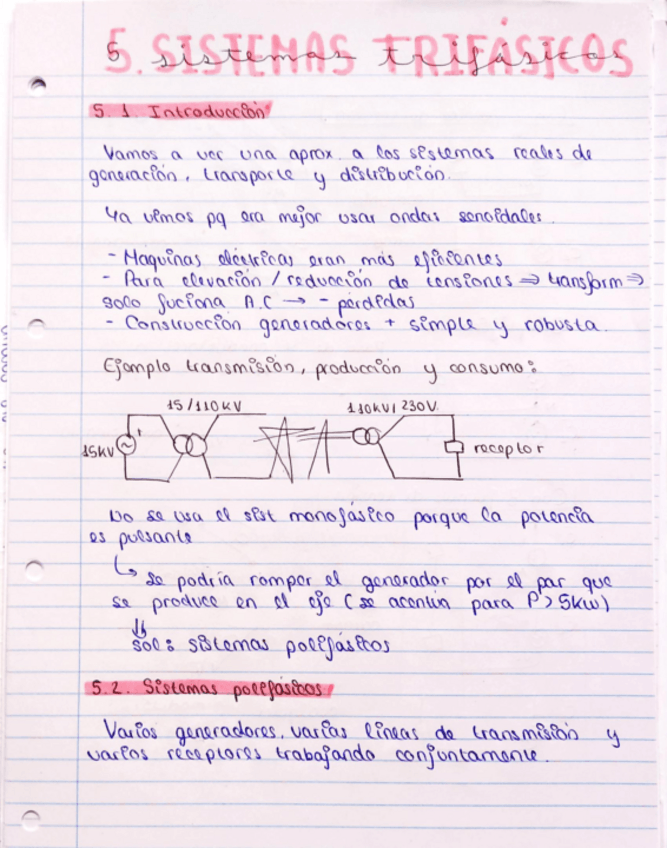 5. SISTEMAS TRIFÁSICOS
5 sistemas trifásicos
5.1. Introducción
Vamos a ver una aprox. a los sistemas reales de
generación, transporte y distribución.
Ya vimos pq era mejor usar ondas senoidales.
- Maquinas eléctricas eran más eficientes
- Para elevación / reducción de tensiones ⇒ transform ⇒
solo fuciona A.C → - pérdidas
- Construcción generadores + simple y robusta.
Ejemplo transmisión, producción y consumo:
15/110KV 110KV/230V.
15KV receptor
No se usa el sist monofásico porque la potencia
es pulsante
↳ se podría romper el generador por el par que
se produce en el eje (se acentúa para P>5kw)
⇓
sol: sistemas polifásicos
5.2. Sistemas polifásicos
Varios generadores, varias líneas de transmisión y
varios receptores trabajando conjuntamente.